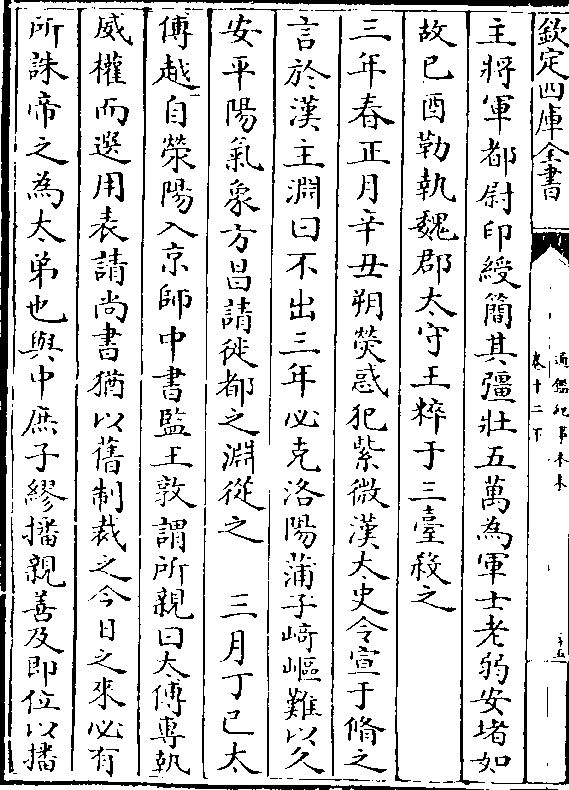 欽定四庫全書
通鑑紀事本末
卷十二下
十五
主將軍都尉印綬簡其彊壯五萬為軍士老弱安堵如
故己酉勒執魏郡太守王粹于三臺殺之
三年春正月辛丑朔熒惑犯紫微漢太史令宣于脩之
言於漢主淵曰不出三年必克洛陽蒲子﨑嶇難以久
安平陽氣象方昌請徙都之淵從之　三月丁巳太
傅越自滎陽入京師中書監王敦謂所親曰太傅專執
威權而選用表請尚書猶以舊制裁之今日之來必有
所誅帝之為太弟也與中庶子繆播親善及即位以播